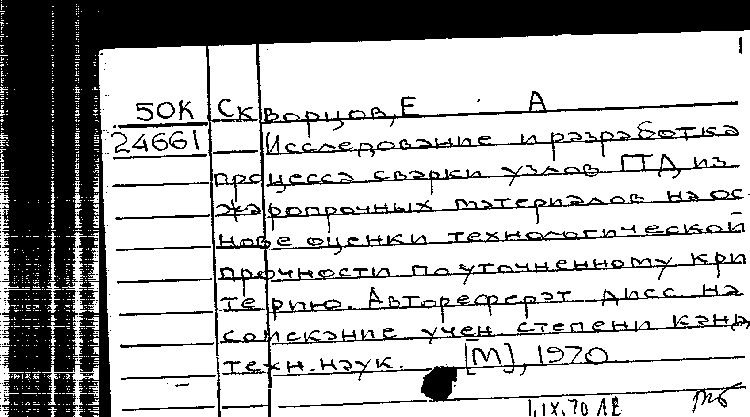 50К Скворцов, Е А
24661 Исследование и разработка
процесса сварки узлов ГТД из
жаропрочных материалов на ос
нове оценки технологической
прочности по уточненному кри
терию. Автореферат дисс на
соискание учен степени канд
техн. наук. [М], 1970